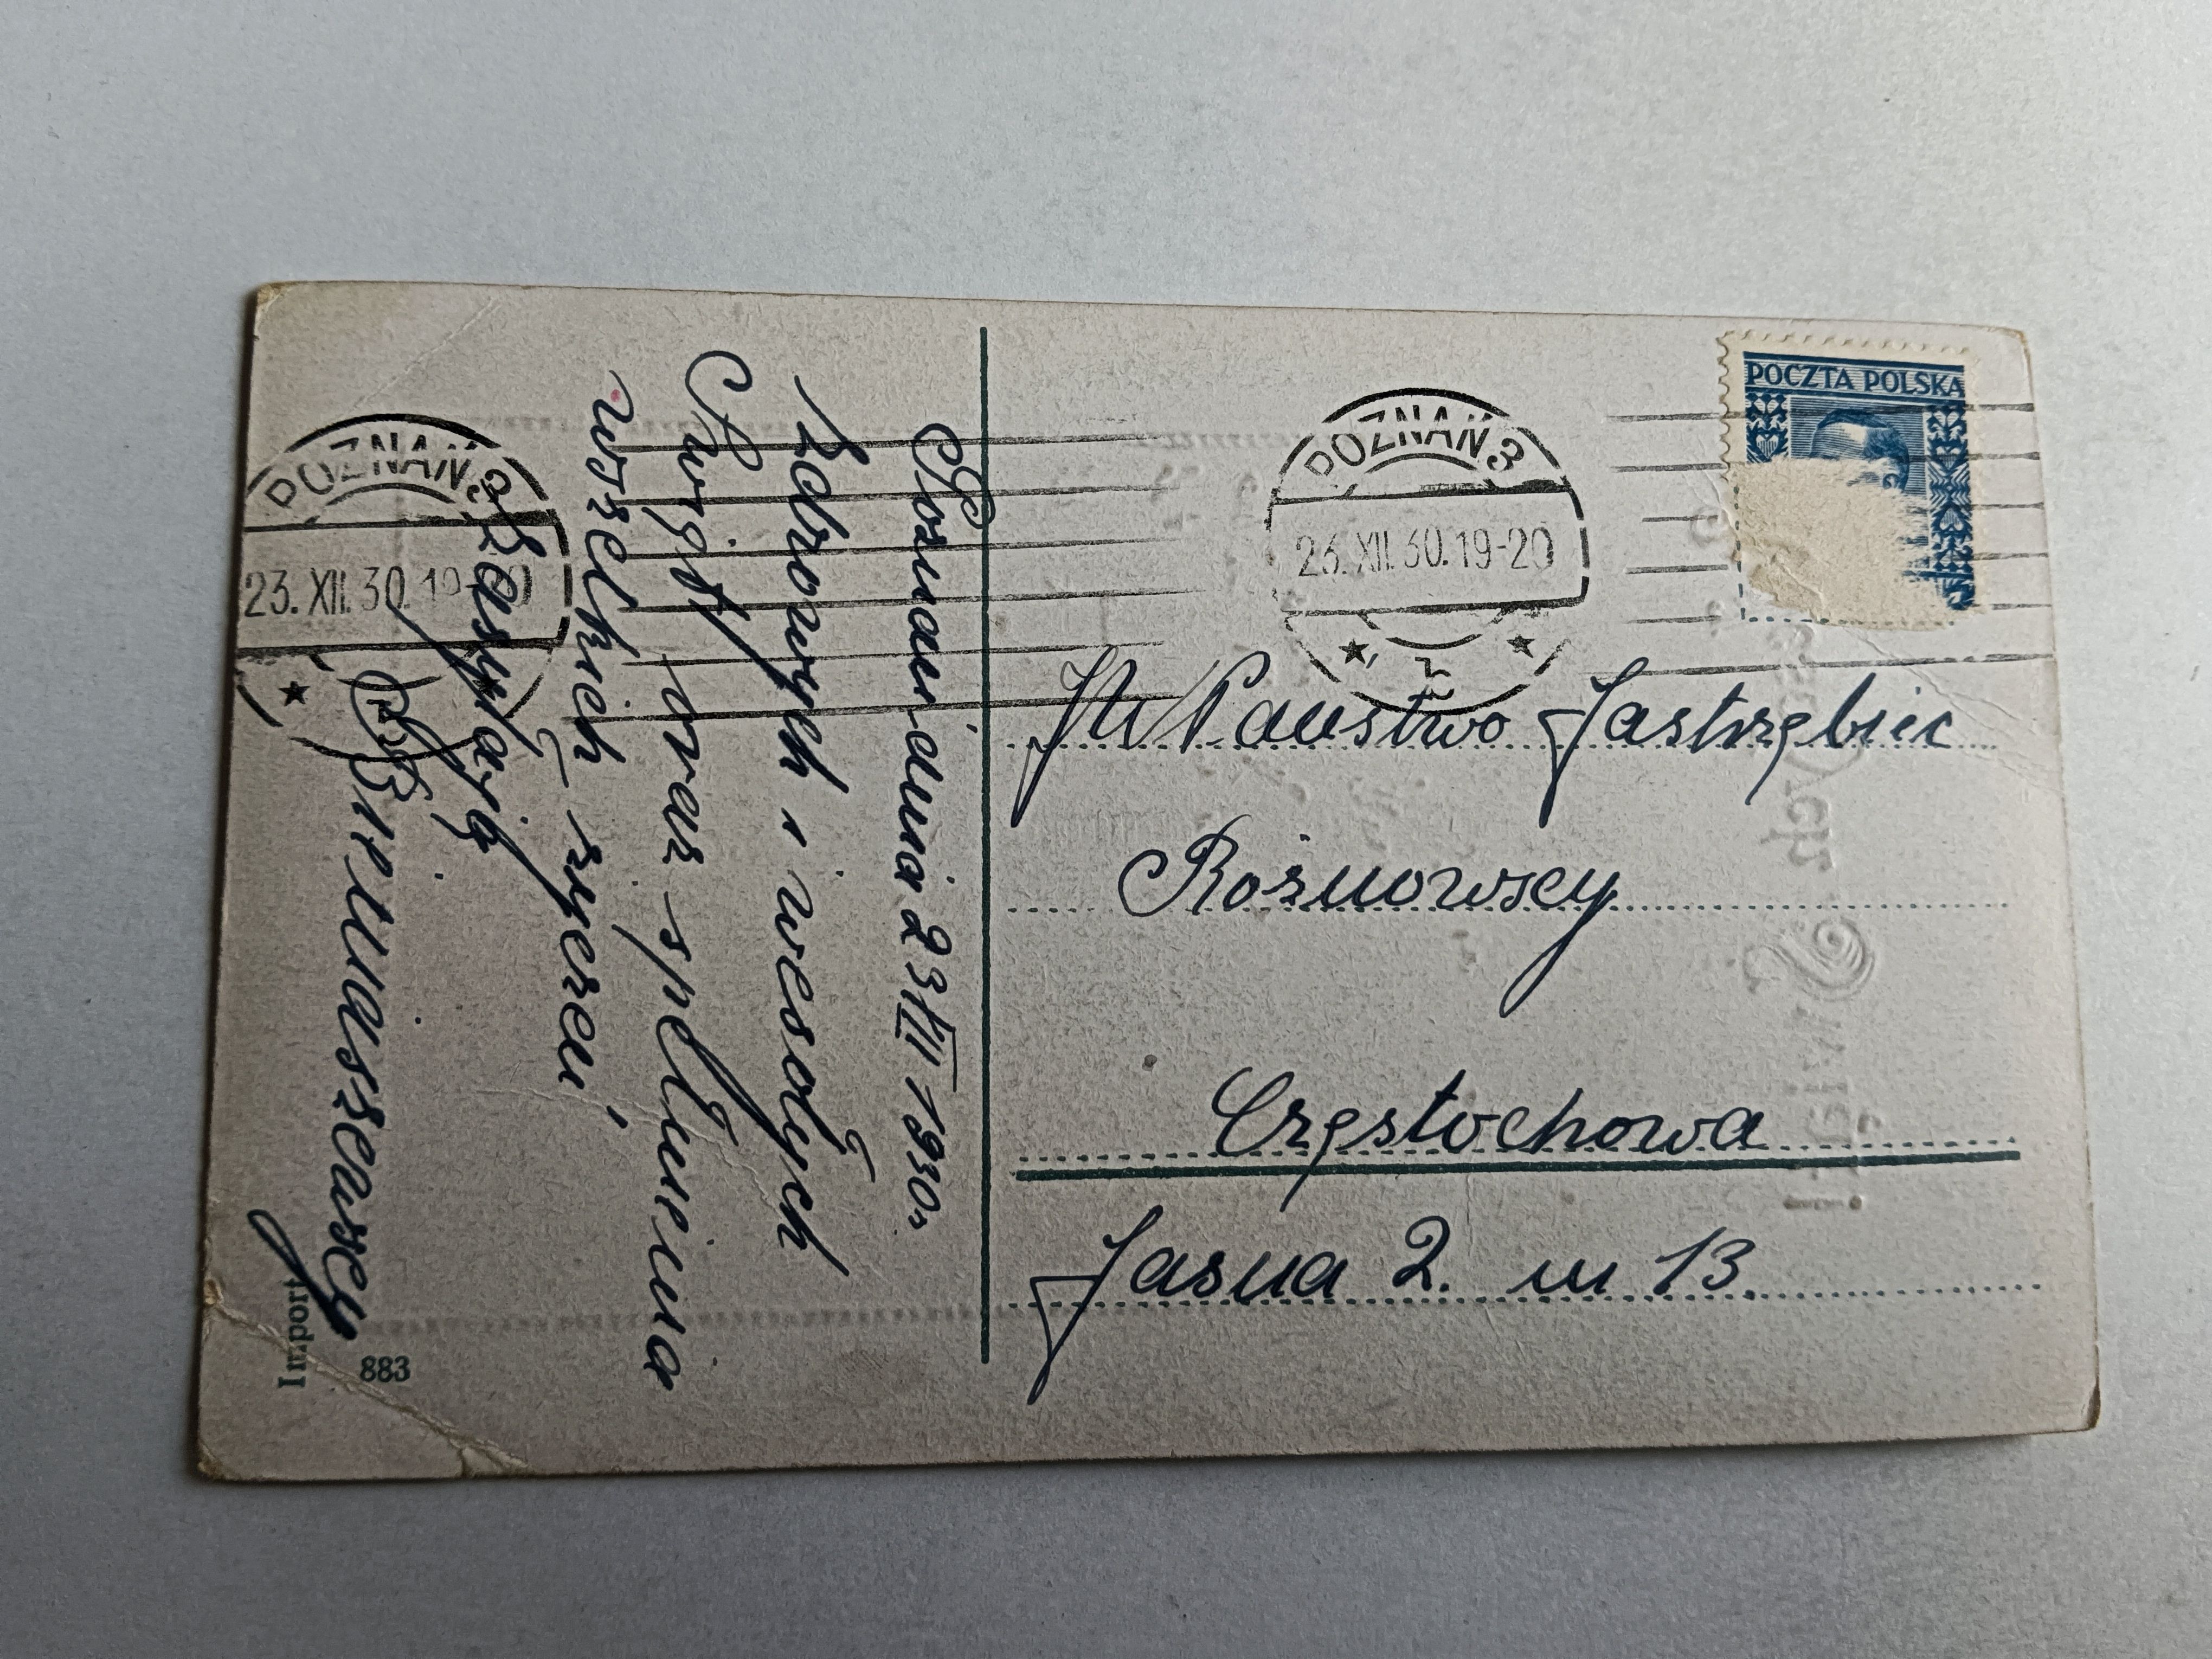 Poznań dnia 23/XII 1930r
Zdrowych i wesołych
Świąt, oraz spełnienia
wszelkich życzeń
zasyłają
Importé
883
POZNAŃ 3
23.XII.30.19-20
POZNAŃ 3
23.XII.30.19-20
POCZTA POLSKA
JW Państwo Jastrzębiec
Rożnowscy
Częstochowa
Jasna 2. m 13.